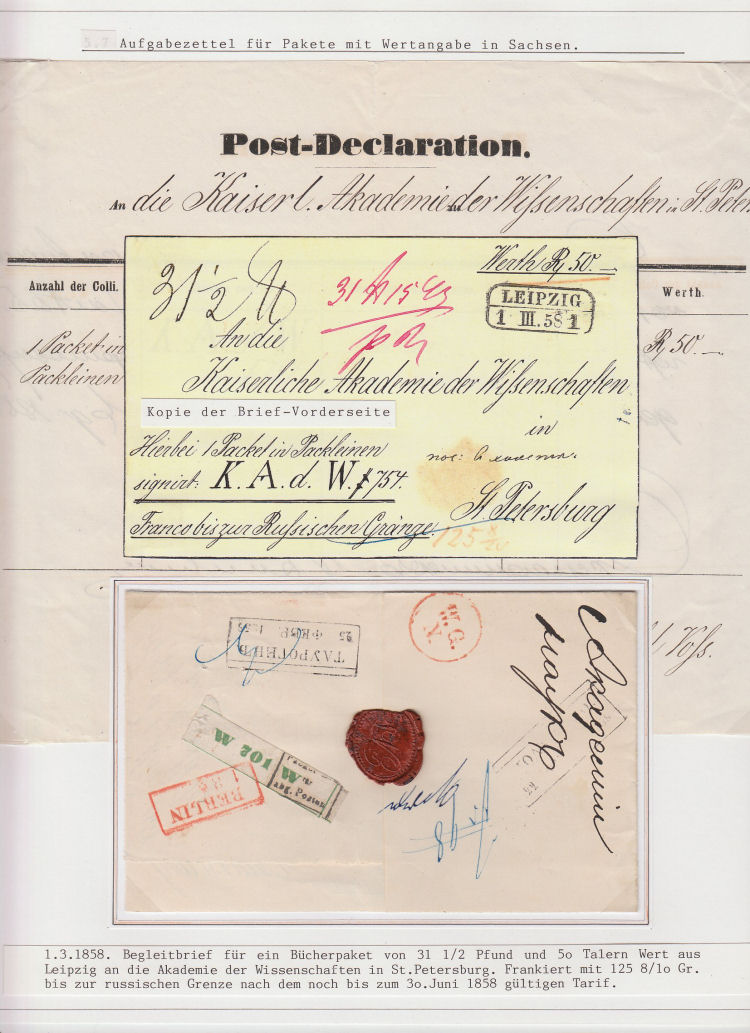 5.7 Aufgabezettel für Pakete mit Wertangabe in Sachsen.
Post-Declaration.
An die Kaiserl. Akademie der Wissenschaften in St. Peter
Anzahl der Colli.
Werth.
1 Packet in
Packleinen
R 50.—
31 1/2 ℔
31 ℔ 15
Werth R 50.—
LEIPZIG
1 III. 58 1
An die
Kaiserliche Akademie der Wissenschaften
Kopie der Brief-Vorderseite
in
Hierbei 1 Packet in Packleinen
signirt: K. A. d. W. # 754.
St. Petersburg
Franco bis zur Russischen Gränze.
125 8/10
Voss.
ТАУРОГЕНЪ
25 ФЕВР. 1858
W. G.
X.
102 M
M
abg. Postan
BERLIN
1.3.1858. Begleitbrief für ein Bücherpaket von 31 1/2 Pfund und 5o Talern Wert aus
Leipzig an die Akademie der Wissenschaften in St.Petersburg. Frankiert mit 125 8/1o Gr.
bis zur russischen Grenze nach dem noch bis zum 3o.Juni 1858 gültigen Tarif.